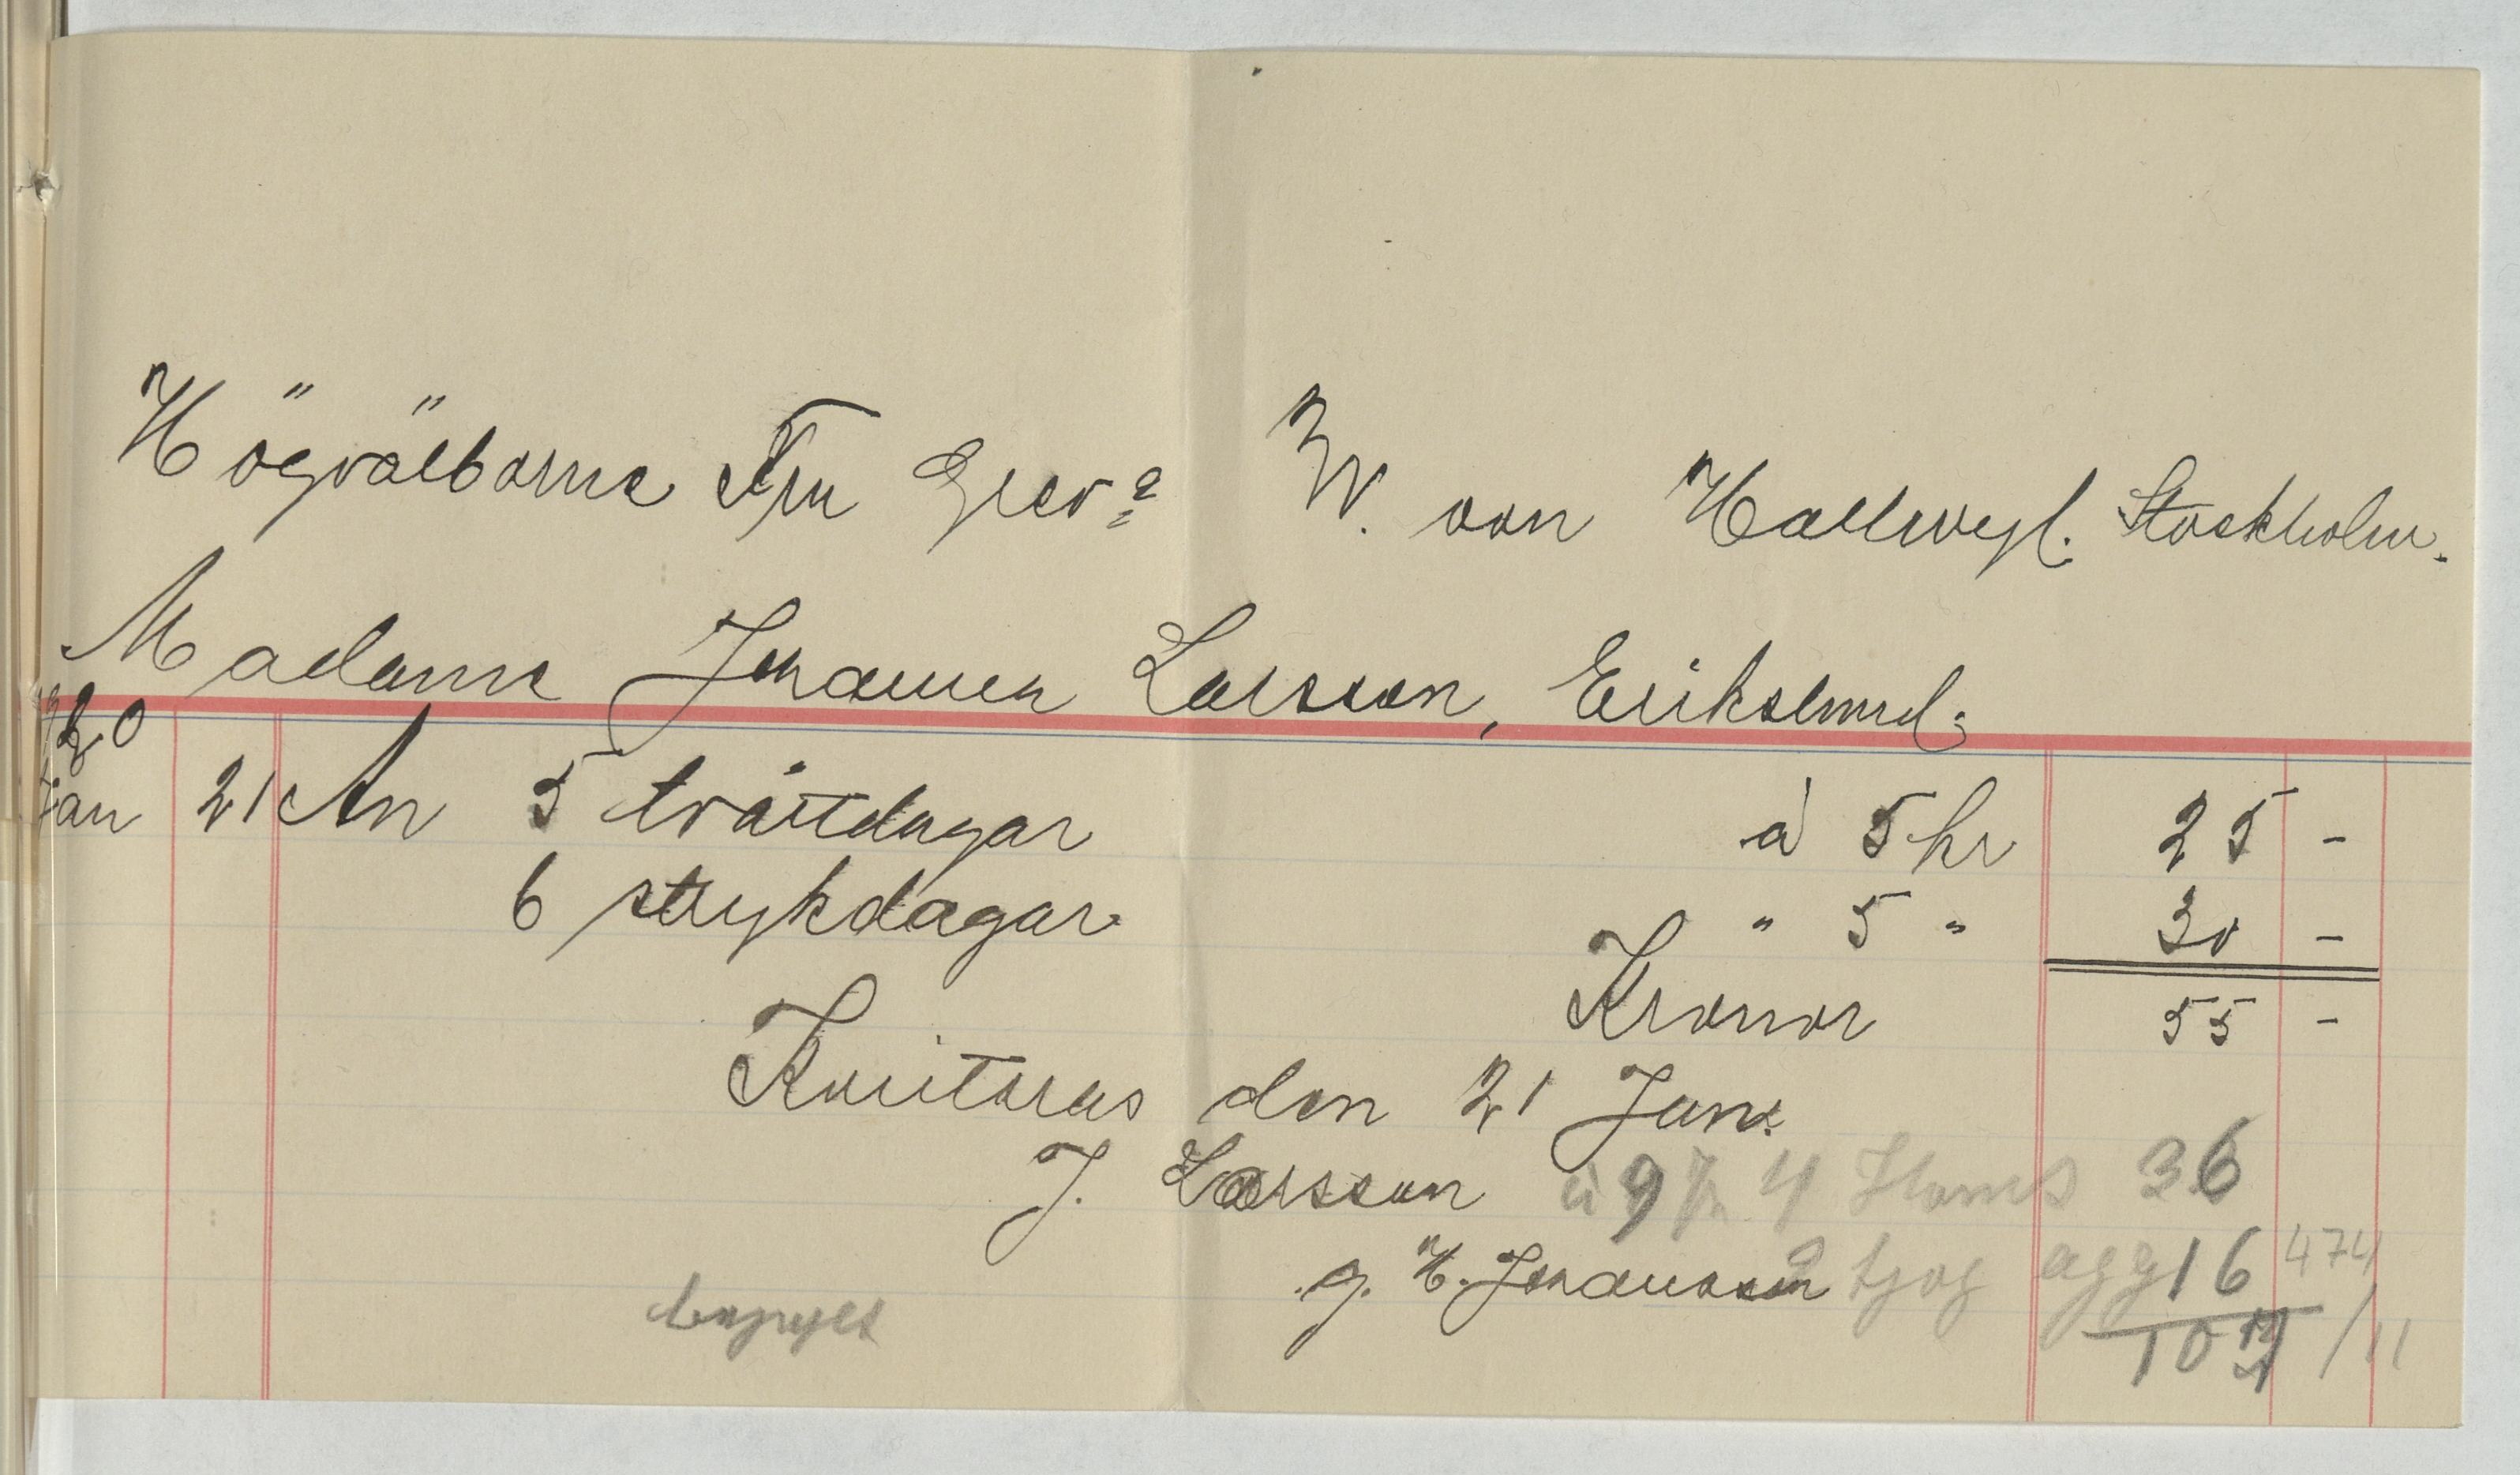 Högvälborne Fru Grev: W. von Hallwyl. Stockholm.
Madame Johansen Larsson, Erikslund.
1920
Jan 21 An 5 tvättdagar à 5 kr 25 -
6 strykdagar " 5 " 30 -
Kronor 55 -
Kvitteras den 21 Jan.
J. Larsson
à 9 kr 4 36
g. H. Johansson
2 tjog ägg 16
474
107 /11